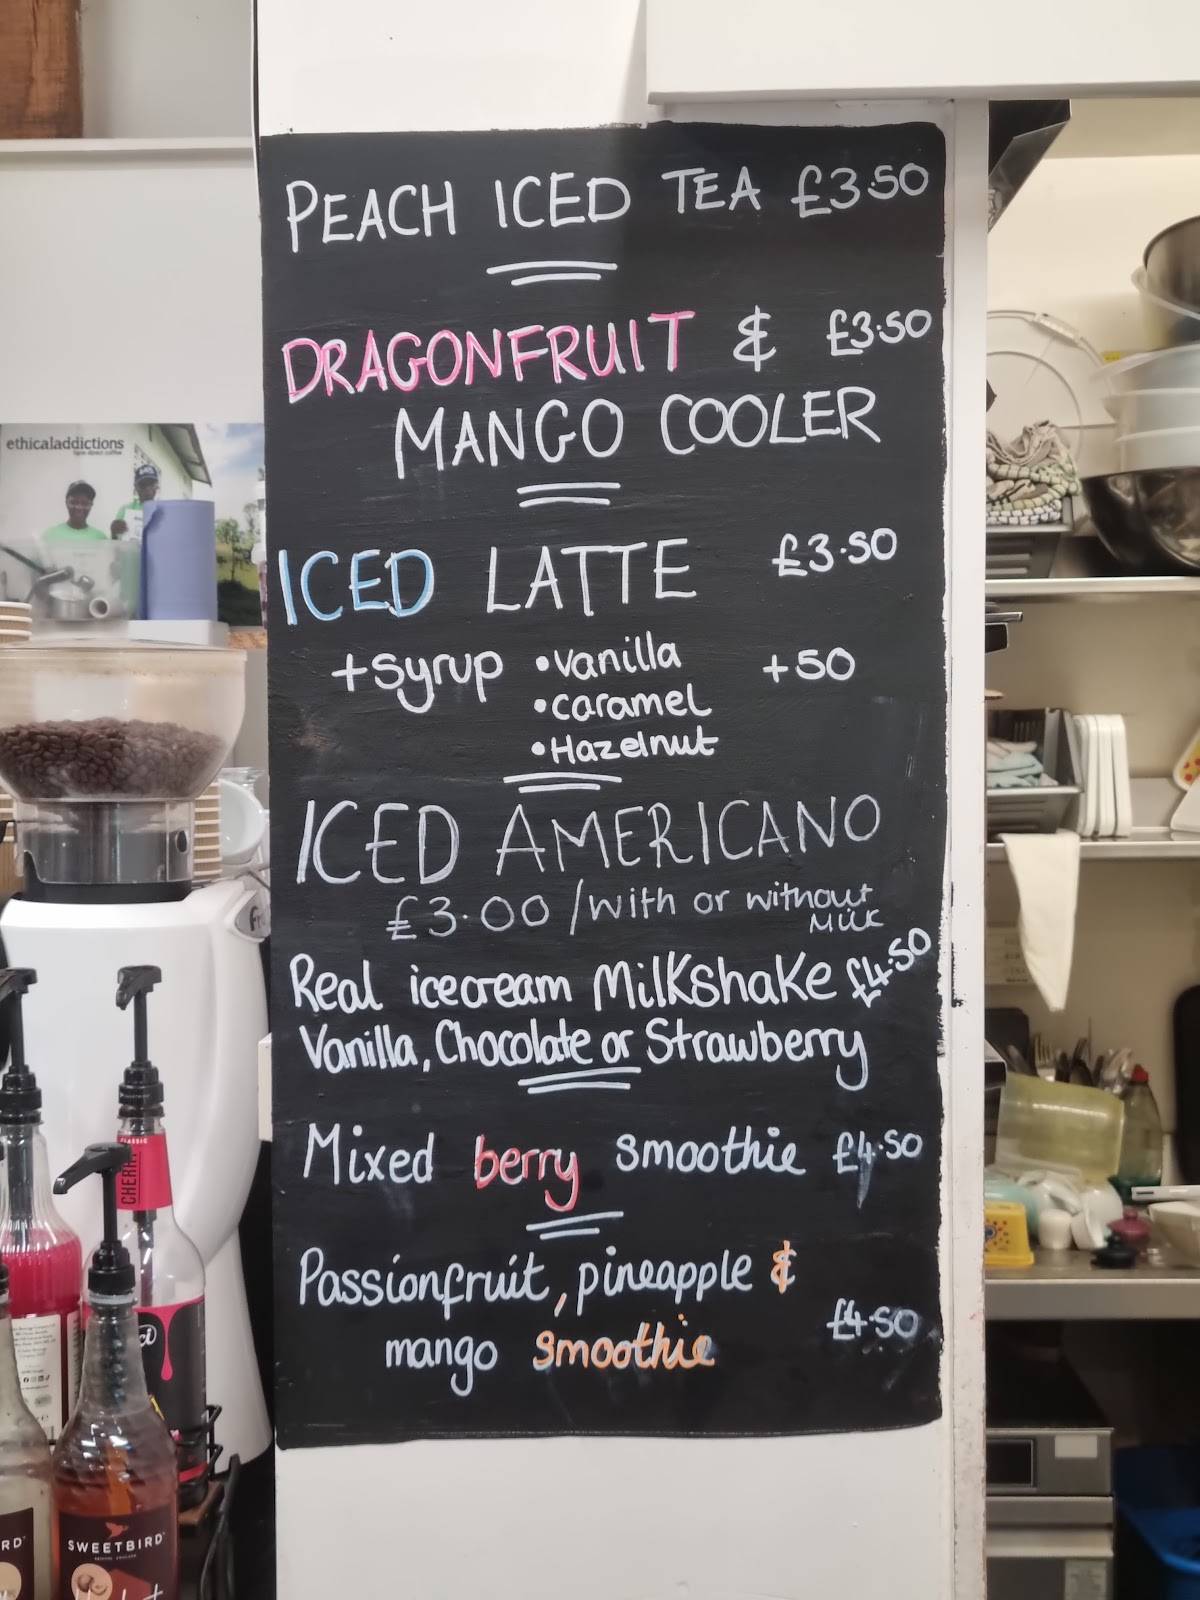 PEACH ICED TEA £3.50
DRAGONFRUIT & £3.50
MANGO COOLER
ICED LATTE £3.50
+syrup •vanilla +50
•caramel
•Hazelnut
ICED AMERICANO
£3.00 /with or without
MILK
Real icecream Milkshake £4.50
Vanilla, Chocolate or Strawberry
Mixed berry smoothie £4.50
Passionfruit, pineapple &
mango smoothie £4.50
ethicaladdictions
farm direct coffee
CLASSIC
CHERRY
SWEETBIRD